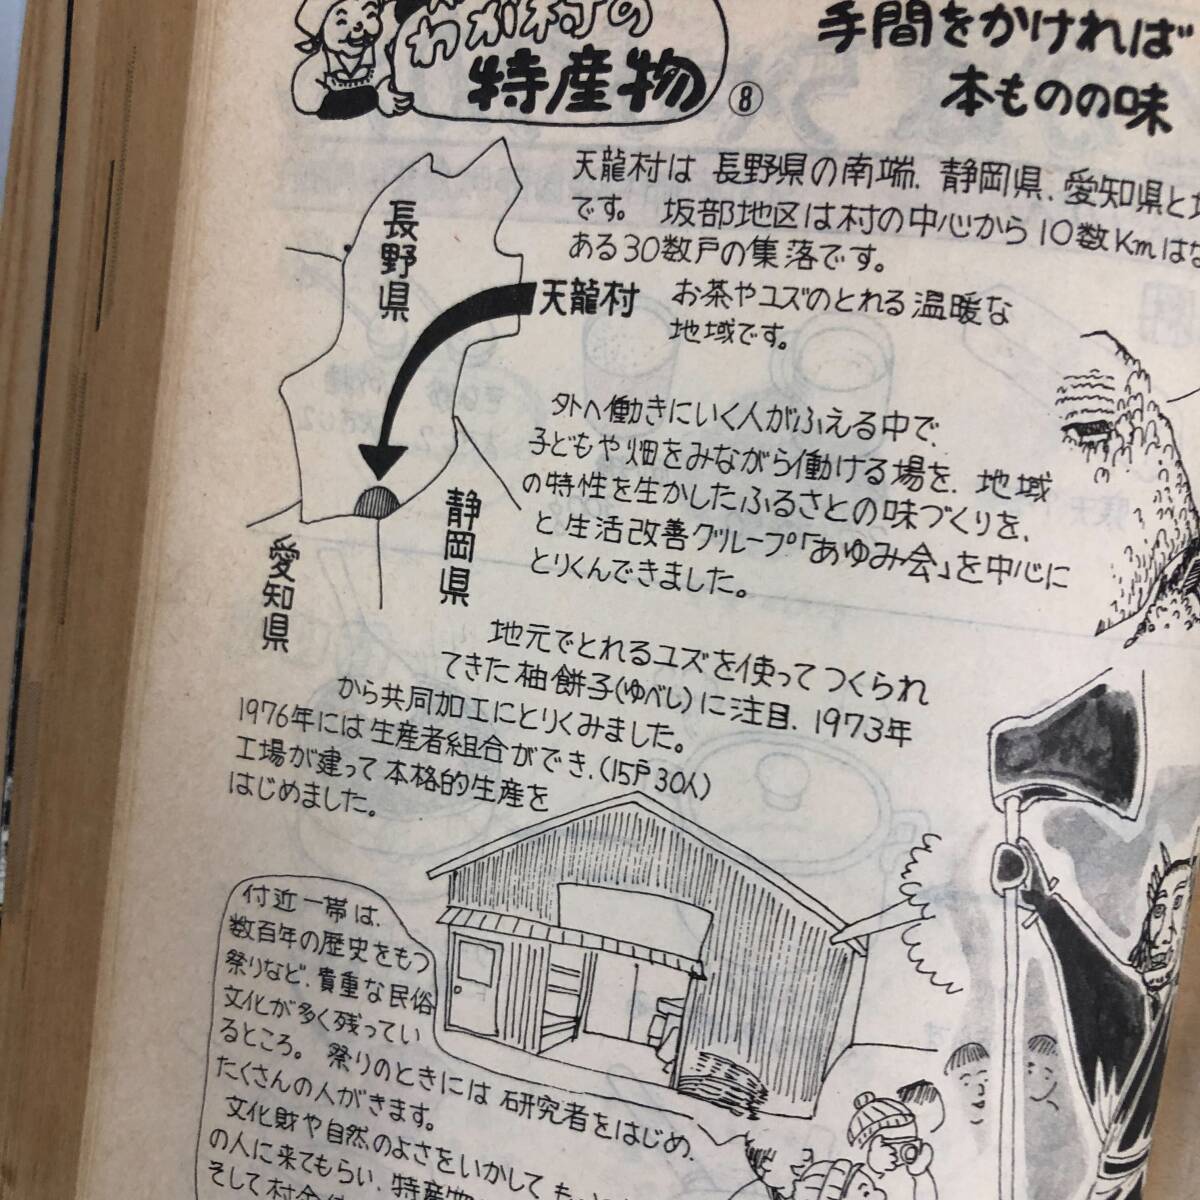 わが村の
特産物 ⑧
手間をかければ
本ものの味
天龍村は 長野県の南端、静岡県、愛知県と
です。 坂部地区は村の中心から10数Kmはな
ある30数戸の集落です。
天龍村
お茶やユズのとれる温暖な
地域です。
長野県
静岡県
愛知県
外へ働きにいく人がふえる中で、
子どもや畑をみながら働ける場を、地域
の特性を生かしたふるさとの味づくりを、
と生活改善グループ「あゆみ会」を中心に
とりくんできました。
地元でとれるユズを使ってつくられ
てきた柚餅子(ゆべし)に注目、1973年
から共同加工にとりくみました。
1976年には生産者組合ができ、(15戸30人)
工場が建って本格的生産を
はじめました。
付近一帯は、
数百年の歴史をもつ
祭りなど、貴重な民俗
文化が多く残ってい
るところ。 祭りのときには研究者をはじめ、
たくさんの人がきます。
文化財や自然のよさをいかして
の人に来てもらい、特産物
そして村